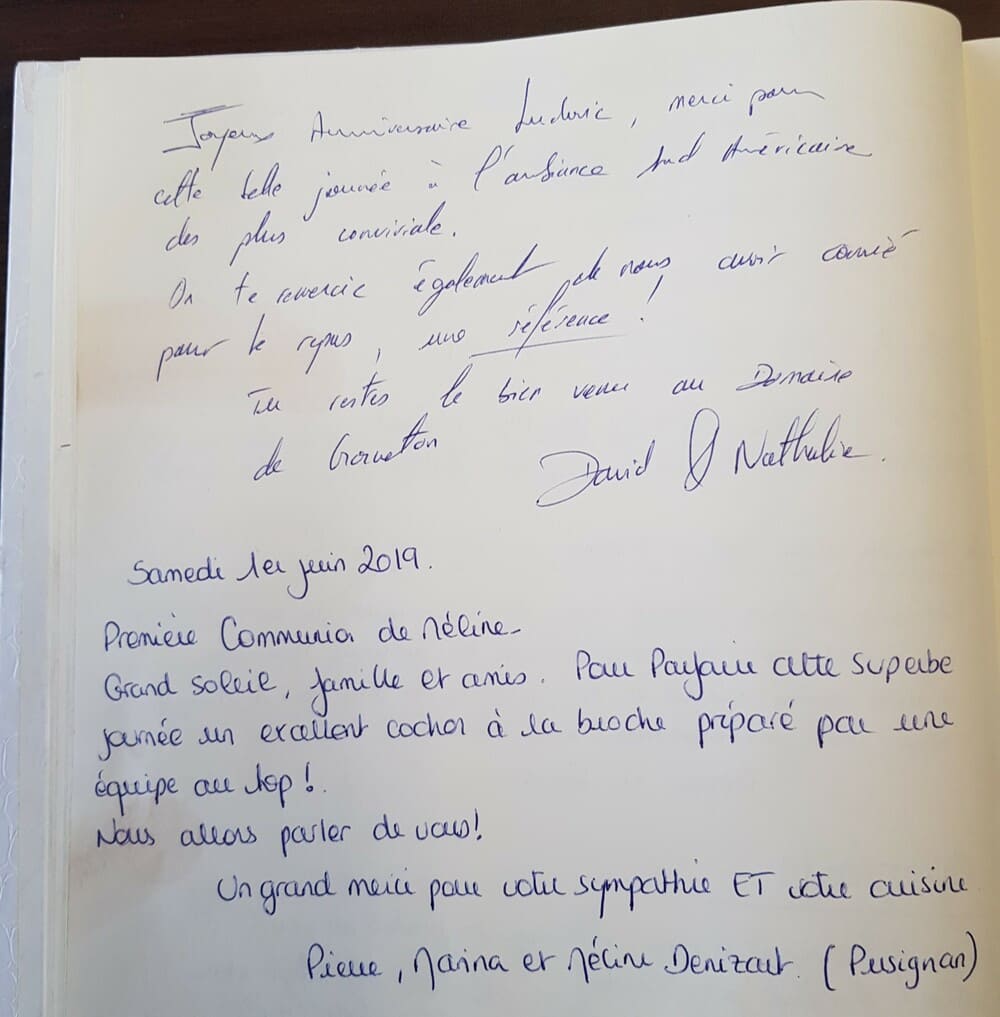 Joyeux Anniversaire Ludovic, merci pour
cette belle journée à l'ambiance Sud Américaine
des plus conviviale.
On te remercie également de nous avoir convié
pour le repas, une référence !
Tu restes le bien venu au Domaine
de
David & Nathalie.
Samedi 1er juin 2019.
Première Communion de Méline_
Grand soleil, famille et amis. Pour Parfaire cette superbe
journée un excellent cochon à la broche préparé par une
équipe au top !.
Nous allons parler de vous !
Un grand merci pour votre sympathie ET votre cuisine
Pierre, Marina et Méline Denizart. (Pusignan)